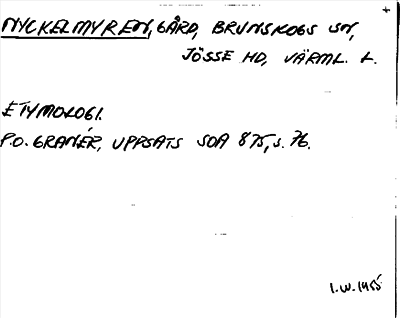 NYCKELMYREN, GÅRD, BRUNSKOGS SN,
JÖSSE HD, VÄRML. L.
ETYMOLOGI.
P.O. GRANÉR, UPPSATS SOA 875, S. 76.
I.W. 1955